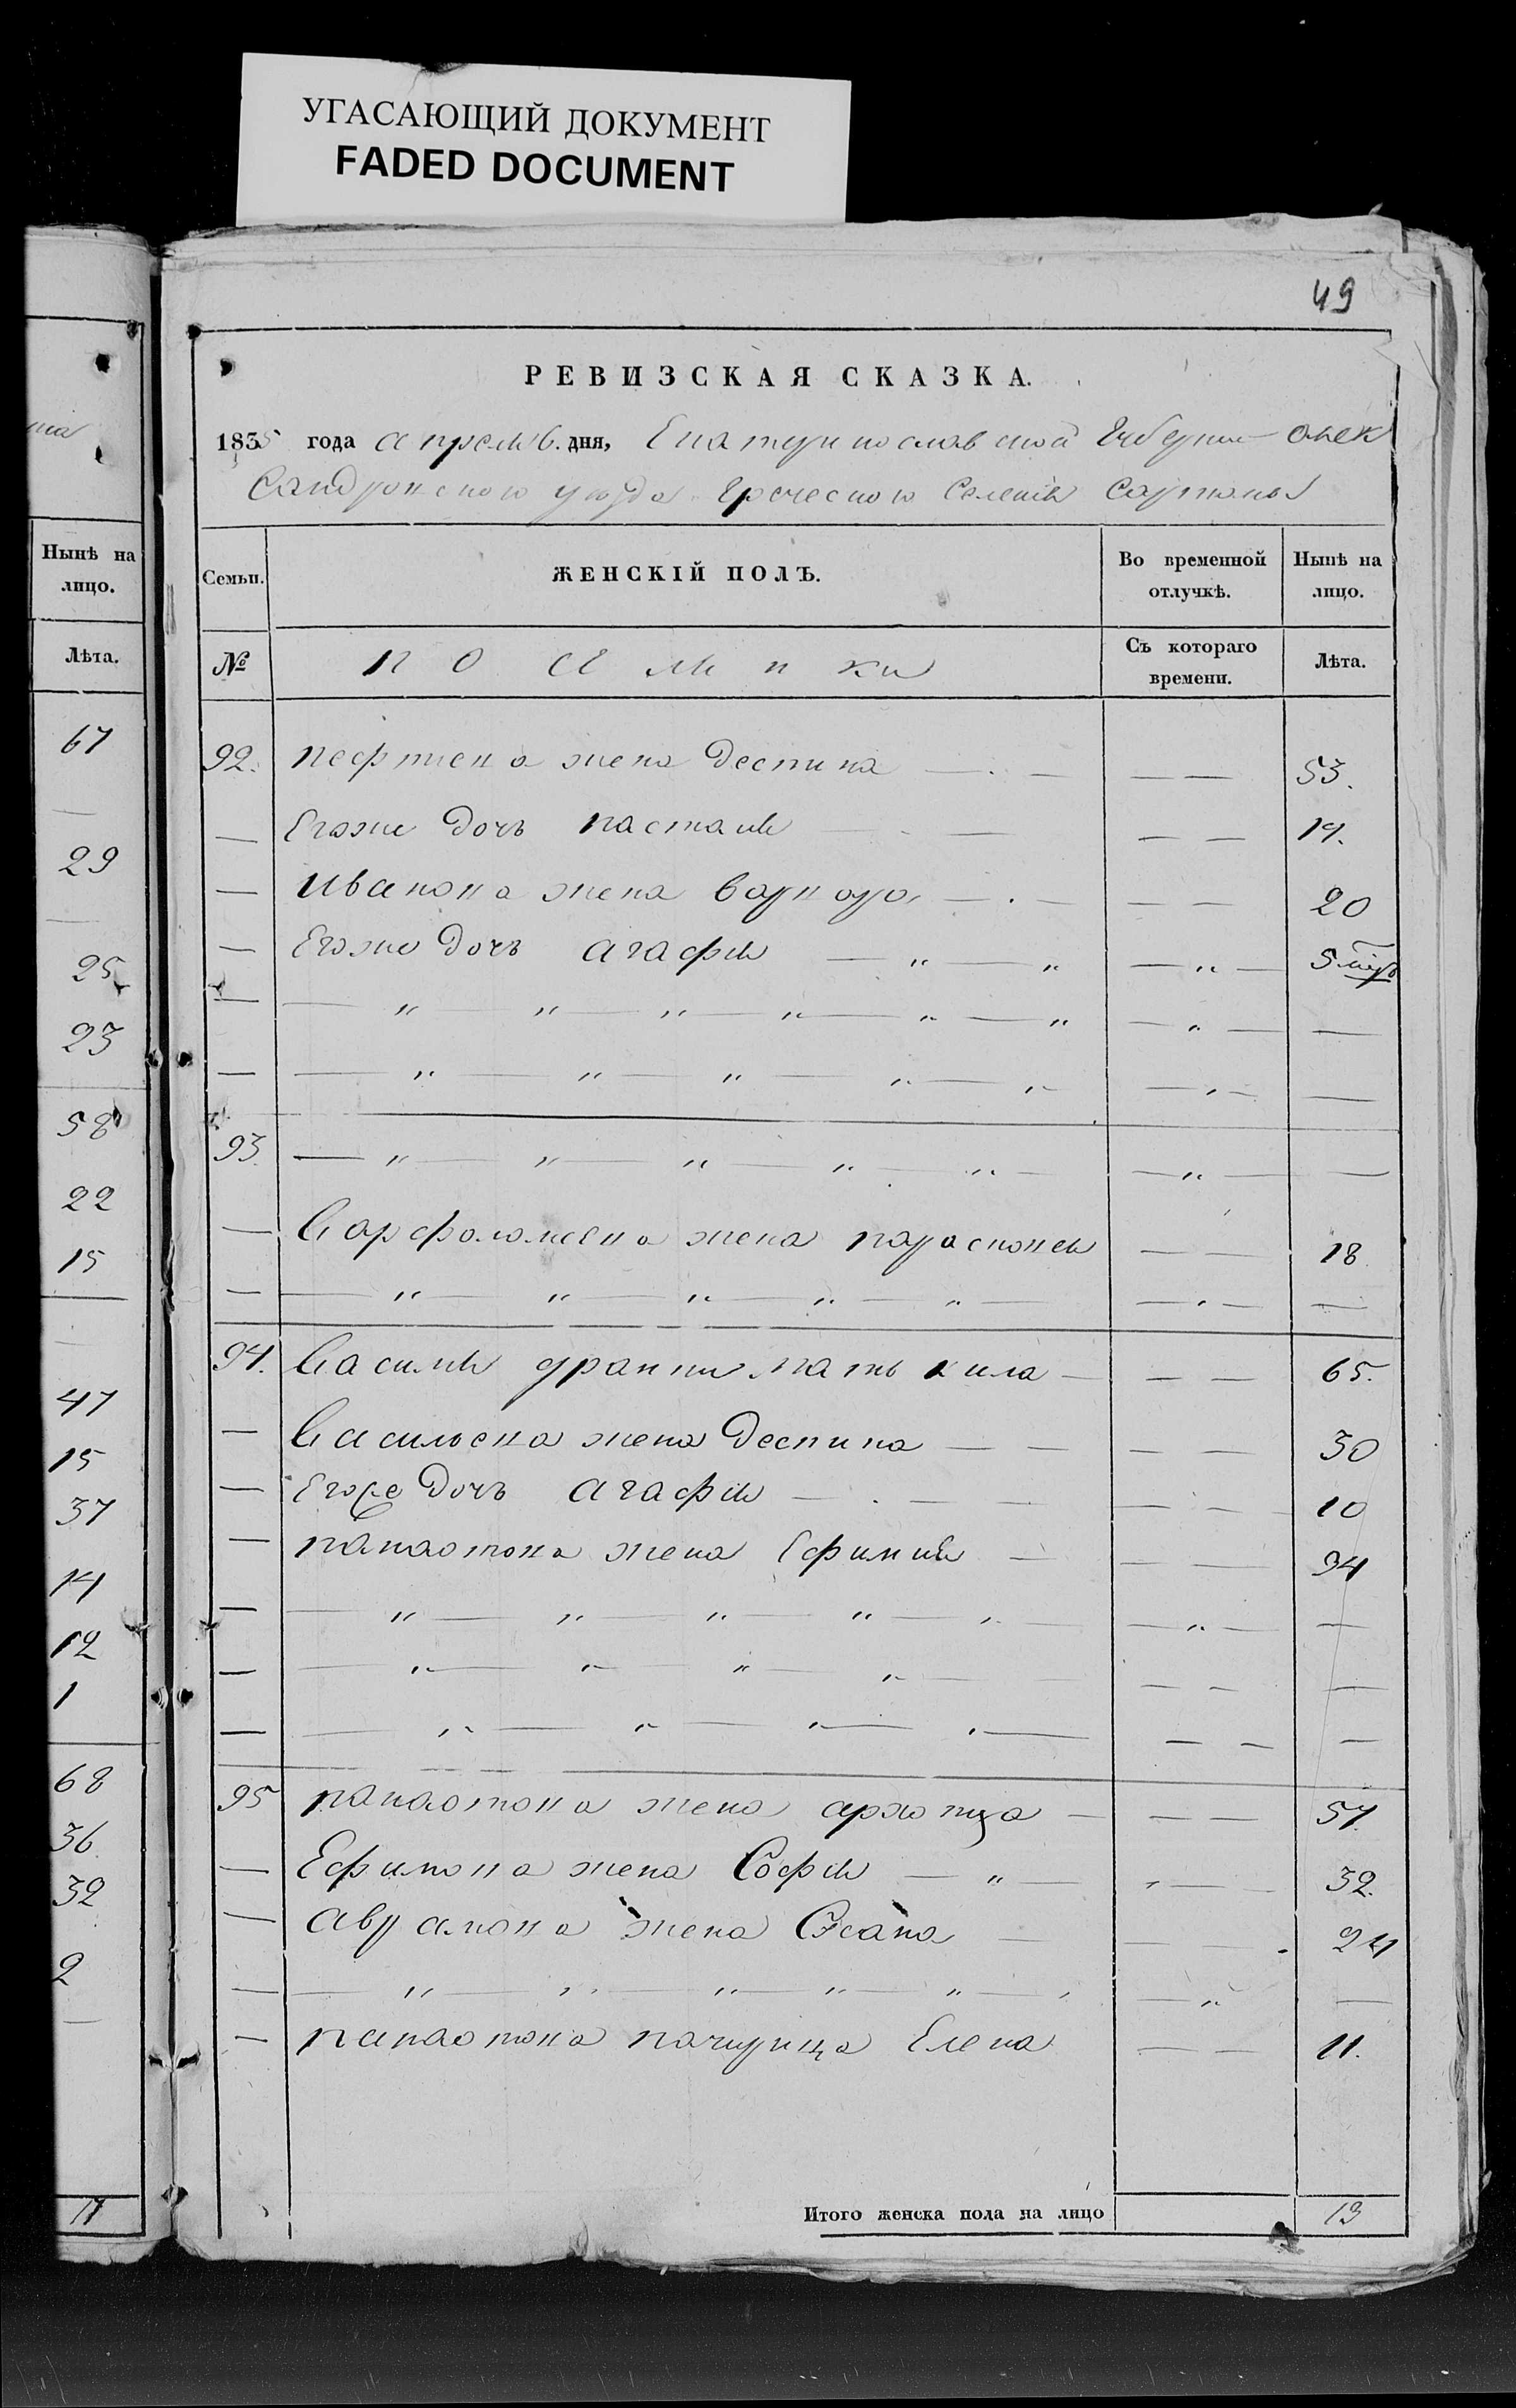 УГАСАЮЩИЙ ДОКУМЕНТ
FADED DOCUMENT
49
РЕВИЗСКАЯ СКАЗКА.
1835 года апреля 6. дня, Екатеринославской Губернии Алек
сандровского уезда Греческого Селения Сартаны
Нынѣ на
лицо.
Лѣта.
67
—
29
—
25
23
58
22
15
—
47
15
37
14
12
1
68
36
32
2
—
17
Семьи. ЖЕНСКІЙ ПОЛЪ. Во временной отлучкѣ. Нынѣ на лицо.
№ Съ котораго времени. Лѣта.
92. жена Деспина — — — — 53.
— Егоже дочь Настасия — — — — 19.
— Иванова жена Варвара — — — — 20
— Егоже дочь Агафия — " — " — " — 5
— — " — " — " — " — " — " — " — —
— — " — " — " — " — " — " — —
93. — " — " — " — " — " — — " — —
— Варфоломеева жена Парасковея — — 18
— — " — " — " — " — " — — " — —
94. Василия мать Кила — — — 65.
— Васильева жена Деспина — — — — 30
— Егоже дочь Агафия — — — — — 10
— Панаотова жена Ефимия — — — 34
— — " — " — " — " — " — — " — —
— — " — " — " — " — — — — —
— — " — " — " — " — — — —
95 Панаотова жена — — — 57.
— Ефимова жена София — " — " — — 32.
— Аврамова жена — — — 24
— — " — " — " — " — " — — " — —
— Панаотова Елена — — 11.
Итого женска пола на лицо 13